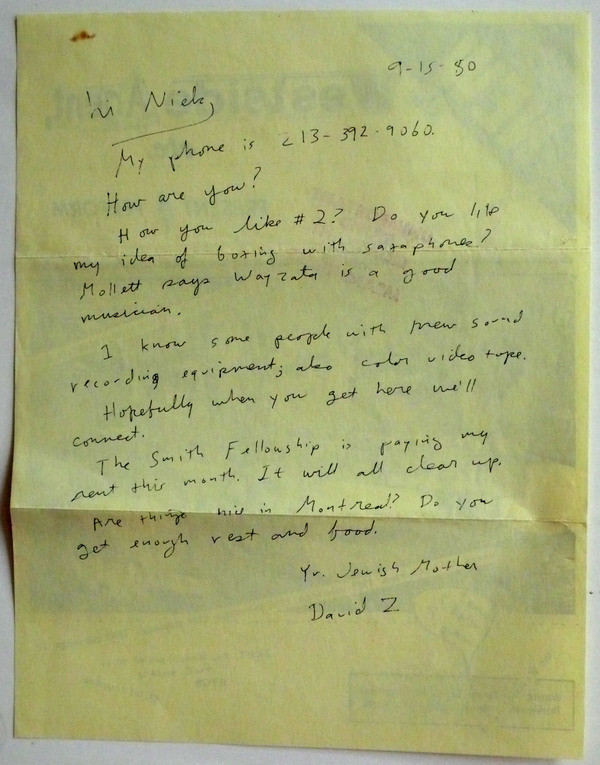 9-15-80
'n Nick,
My phone is 213-392-9060.
How are you?
How you like #2? Do you like
my idea of boxing with saxaphones?
Mollett says Wayzata is a good
musician.
I know some people with new sound
recording equipment; also color video tape.
Hopefully when you get here we'll
connect.
The Smith Fellowship is paying my
rent this month. It will all clear up.
Are things nice in Montreal? Do you
get enough rest and food.
Yr. Jewish Mother
David Z